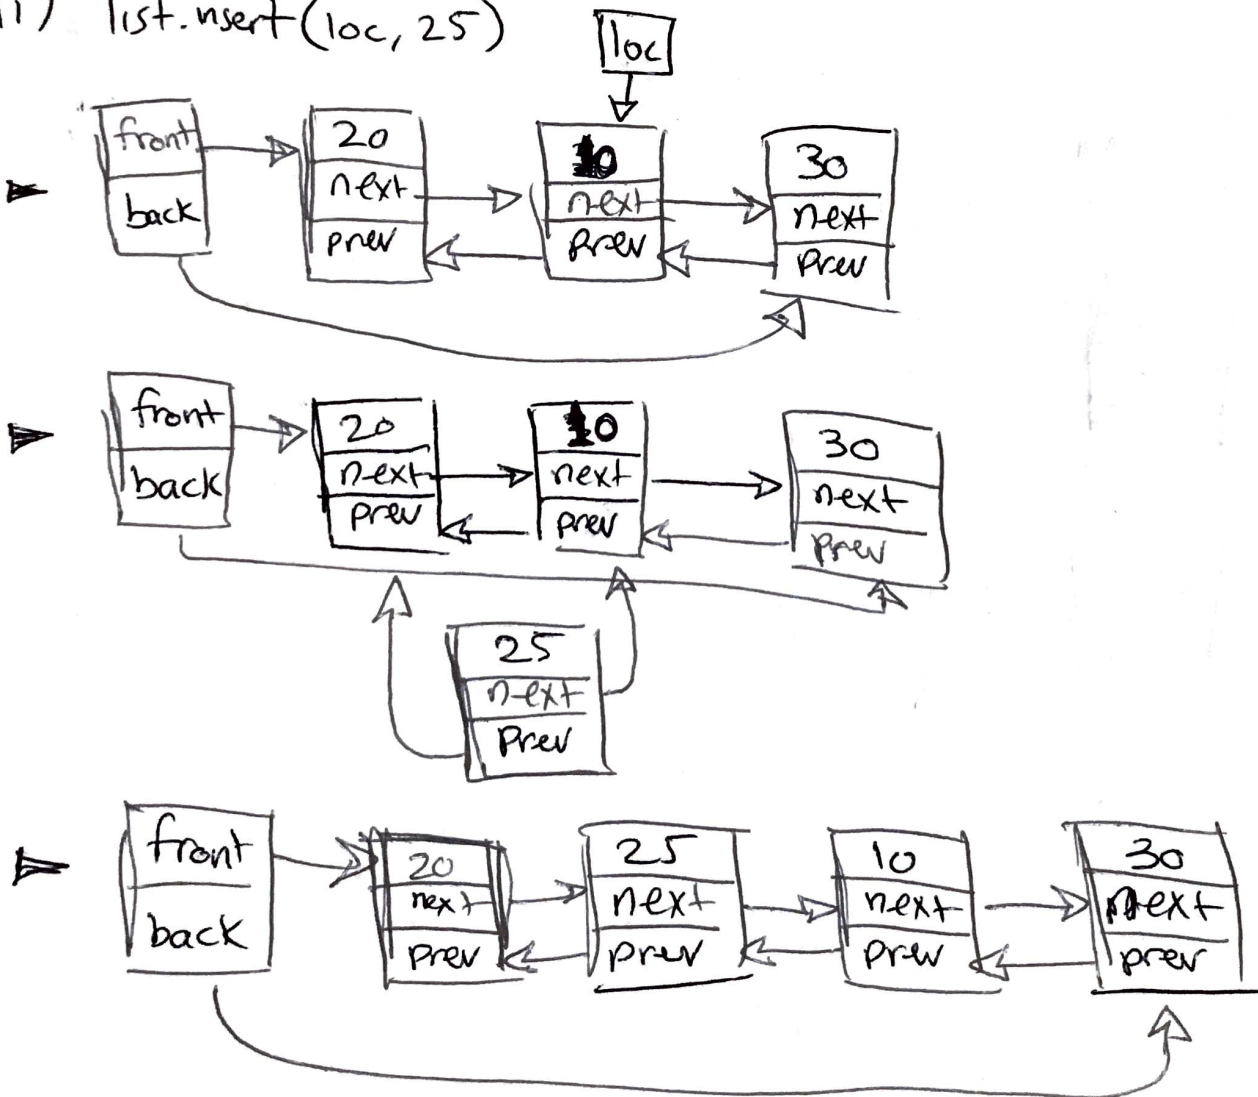 ii) list.nsert(loc, 25)
loc
front
back
20
next
prev
10
next
prev
30
next
prev
front
back
20
next
prev
10
next
prev
30
next
prev
25
next
prev
front
back
20
next
prev
25
next
prev
10
next
prev
30
next
prev